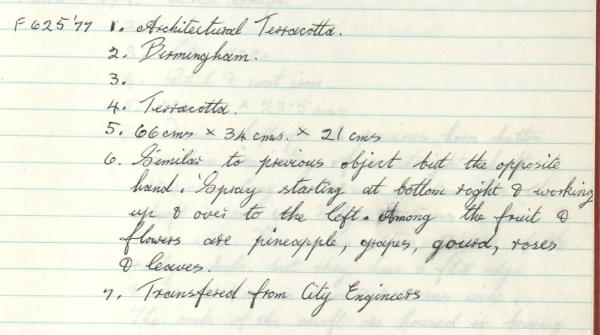 F625'77 1. Architectural Terracotta.
2. Birmingham.
3.
4. Terracotta.
5. 66cms × 34 cms. × 21 cms
6. Similar to previous object but the opposite
hand. Spray starting at bottom right & working
up & over to the left. Among the fruit &
flowers are pineapple, grapes, gourd, roses
& leaves.
7. Transfered from City Engineers